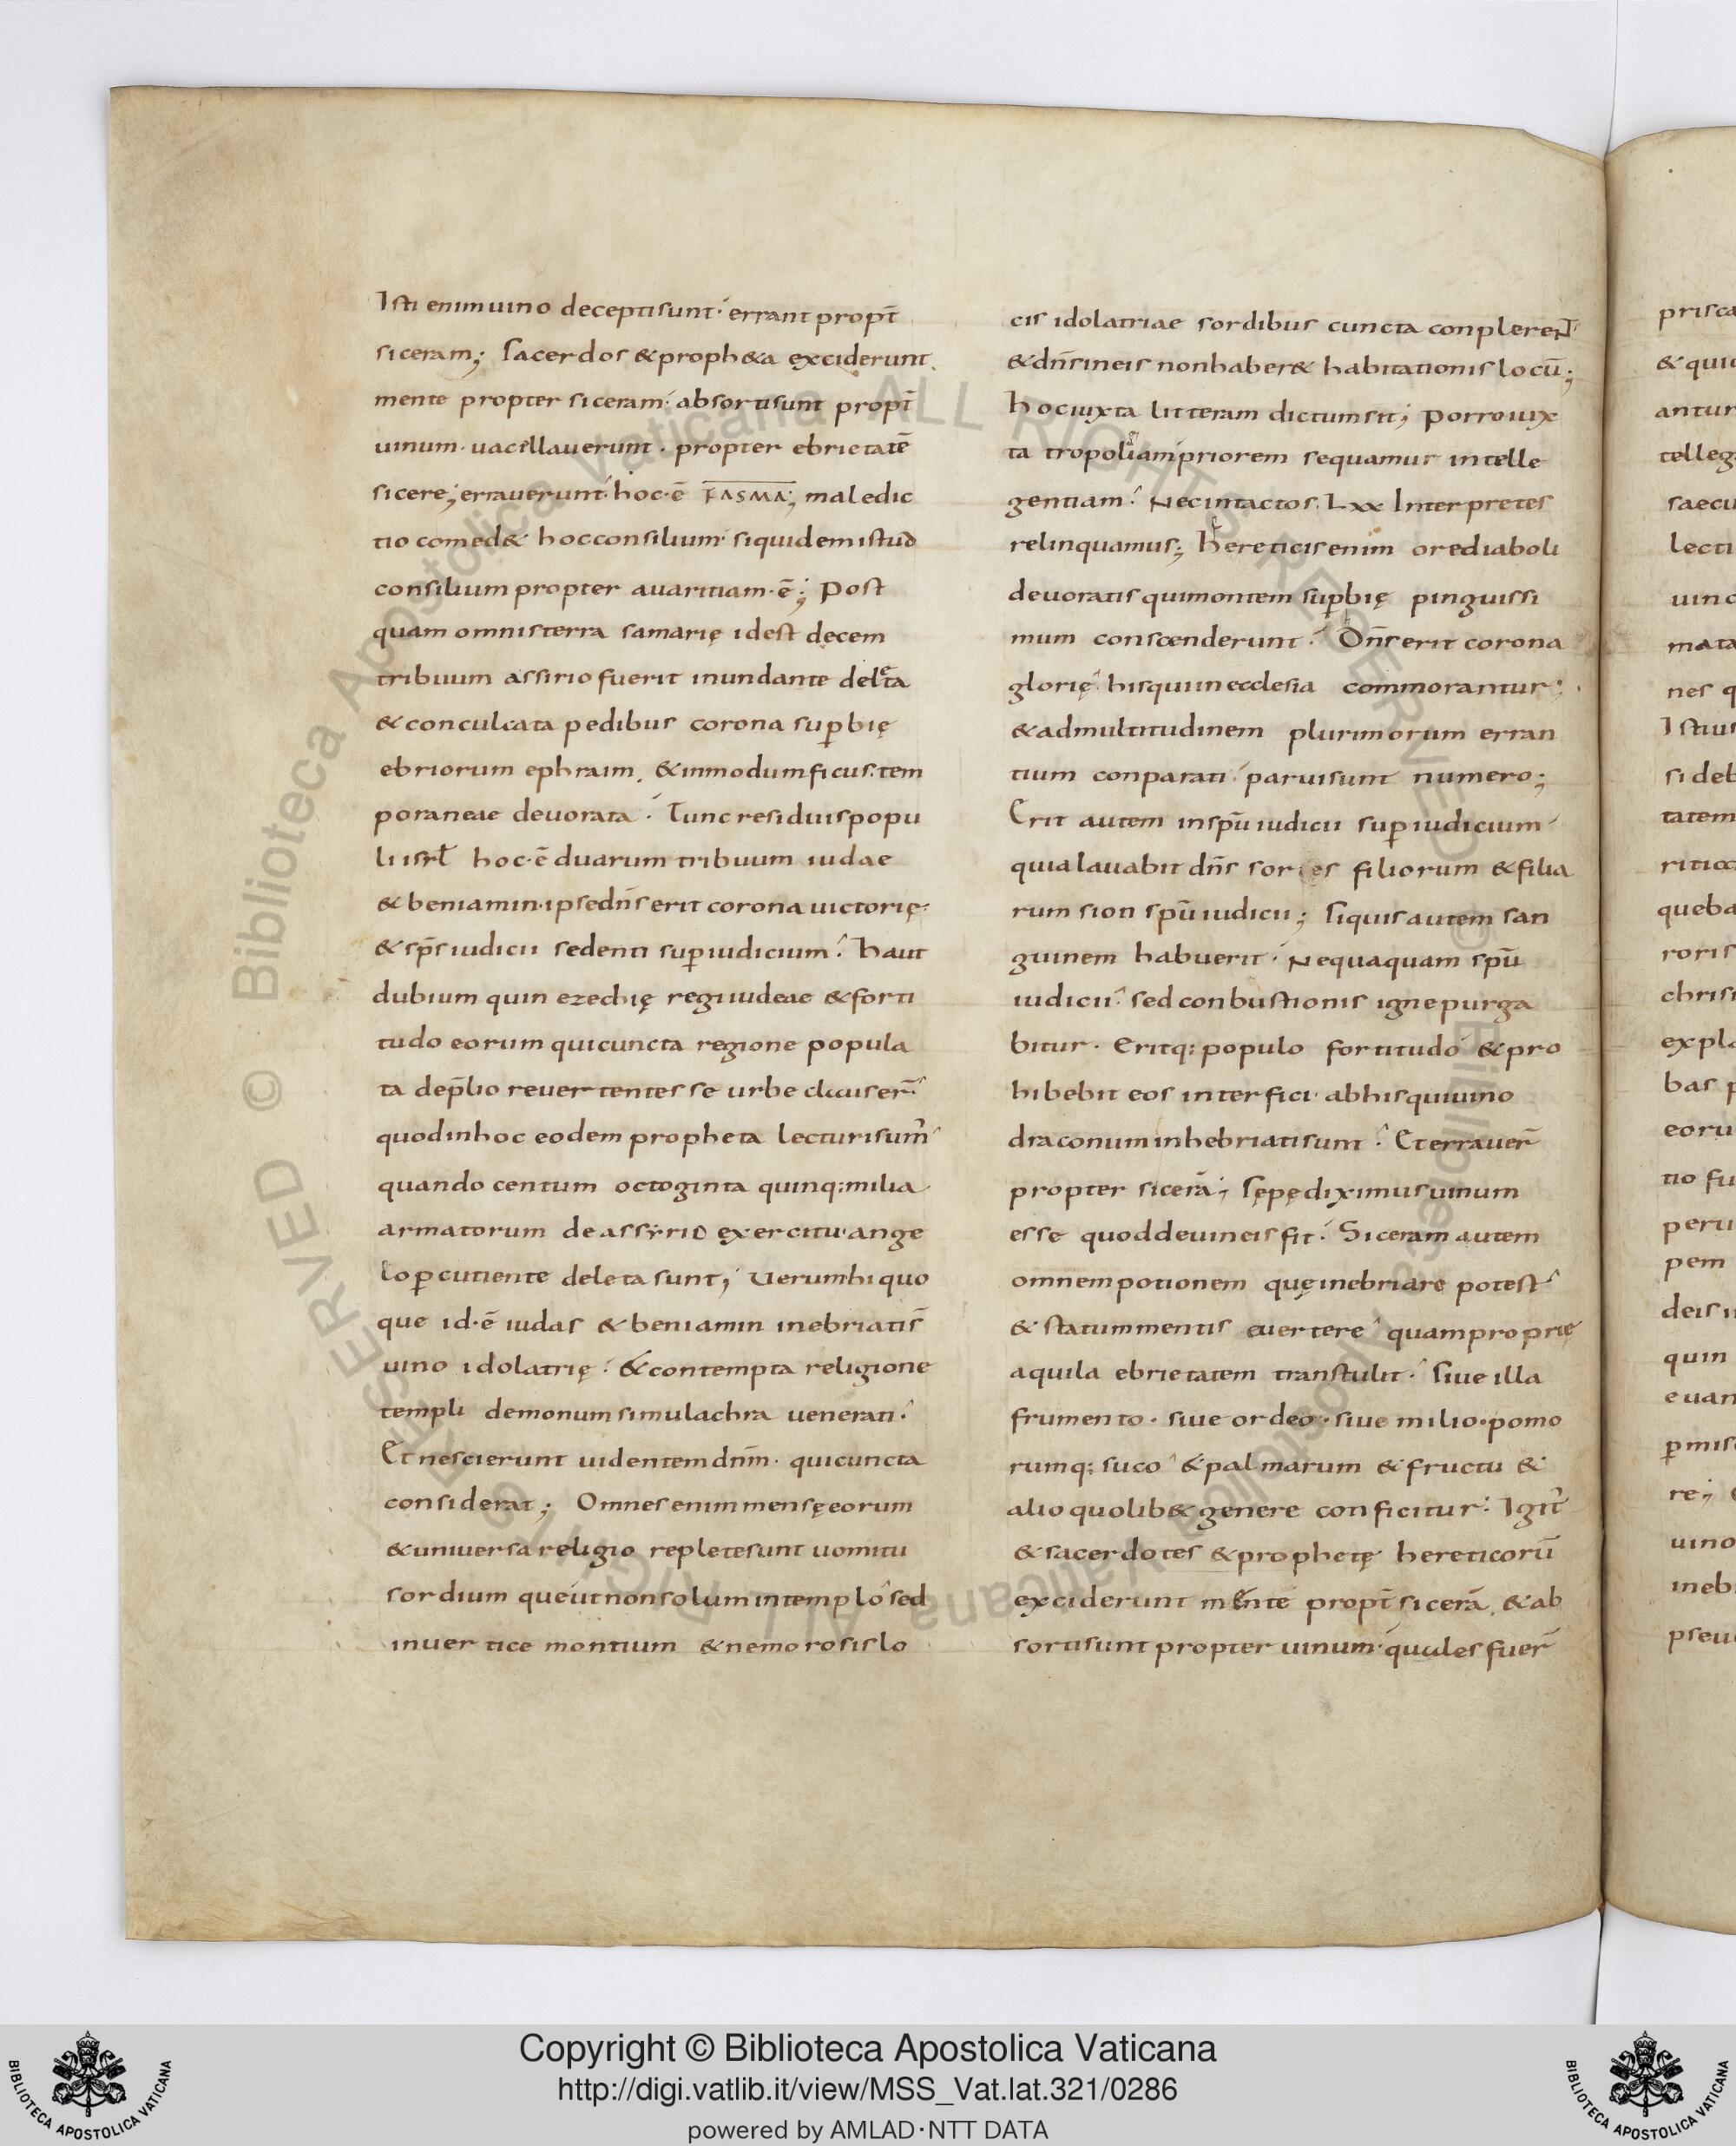 Isti enim uino decepti sunt· errant propt̄
siceram; Sacerdos & proph&a exciderunt
mente propter siceram· absorti sunt propt̄
uinum· uacillauerunt· propter ebrietatē
sicere; errauerunt· hoc·ē FASMA; maledic
tio comed& hoc consilium· siquidem istud
consilium propter auaritiam·ē; Post
quam omnis terra samarię idest decem
tribuum assirio fuerit inundante deleta
& conculcata pedibus corona sup̱bię
ebriorum ephraim, & inmodum ficus tem
poraneae deuorata· Tunc residuis popu
li isrł hoc·ē duarum tribuum iudae
& beniamin· ipse dn̄s erit corona uictorię·
& sp̄s iudicii sedenti sup̱ iudicium· haut
dubium quin ezechię regi iudeae & forti
tudo eorum qui cuncta regione popula
ta dep̄lio reuertentes se urbe clauser̄·
quod in hoc eodem propheta lecturi sum̄
quando centum octoginta quinq; milia
armatorum de assyrio exercitu· ange
lo p̱cutiente deleta sunt; Uerum hi quo
que id·ē iudas & beniamin inebriati s̄
uino idolatrię· & contempta religione
templi demonum simulachra uenerati·
Et nescierunt uidentem dn̄m· qui cuncta
considerat; Omnes enim mensę eorum
& uniuersa religio replete sunt uomitu
sordium que ut non solum in templo sed
in uertice montium & nemorosis lo
cis idolatriae sordibus cuncta conplerent
& dn̄s in eis non haber& habitationis locū;
hoc iuxta litteram dictum sit; Porro iux
ta tropoliam priorem sequamur intelle
gentiam· Nec intactos· Lxx Interpretes
relinquamus; hereticis enim ore diaboli
deuoratis qui montem sup̱bię pinguissi
mum conscenderunt· Dn̄s erit corona
glorię his qui in ecclesia commorantur·
& ad multitudinem plurimorum erran
tium conparati· parui sunt numero;
Erit autem in sp̄u iudicii sup̱ iudicium
quia lauabit dn̄s sordes filiorum & filia
rum sion sp̄u iudicii; Siquis autem san
guinem habuerit· Nequaquam sp̄u
iudicii· sed conbustionis igne purga
bitur· Eritq; populo fortitudo & pro
hibebit eos interfici ab his qui uino
draconum inhebriati sunt· Et errauer̄
propter sicerā; Sępę diximus uinum
esse quod de uineis fit· Siceram autem
omnem potionem quę inebriare potest
& statum mentis euertere quam proprię
aquila ebrietatem transtulit· Siue illa
frumento· siue ordeo· siue milio· pomo
rumq; suco & palmarum & fructu &
alio quolib& genere conficitur· Igit̄
& sacerdotes & prophetę hereticorū
exciderunt mente propt̄ sicerā, & ab
sorti sunt propter uinum· quales fuer̄
prisca
& qui
antur
telleg
saecu
lecti
uinc
mata
nes q
Istius
si deb
tatem
queba
roris
chris
expla
bas p
eoru
tio fu
peru
pem
deis
quin
euan
p̱mis
re;
uino
ineb
pseu
Copyright © Biblioteca Apostolica Vaticana
http://digi.vatlib.it/view/MSS_Vat.lat.321/0286
powered by AMLAD·NTT DATA
BIBLIOTECA APOSTOLICA VATICANA
BIBLIOTECA APOSTOLICA VATICANA
© Biblioteca Apostolica Vaticana ALL RIGHTS RESERVED
© Biblioteca Apostolica Vaticana ALL RIGHTS RESERVED